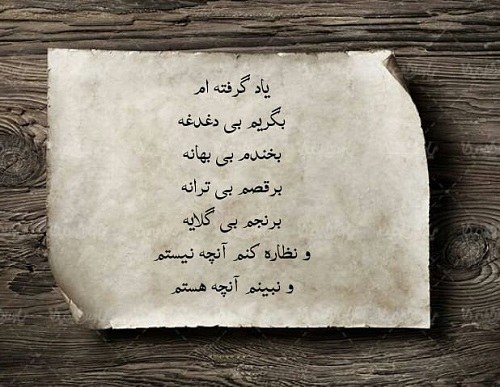 یاد گرفته ام
بگریم بی دغدغه
بخندم بی بهانه
برقصم بی ترانه
برنجم بی گلایه
و نظاره کنم آنچه نیستم
و نبینم آنچه هستم